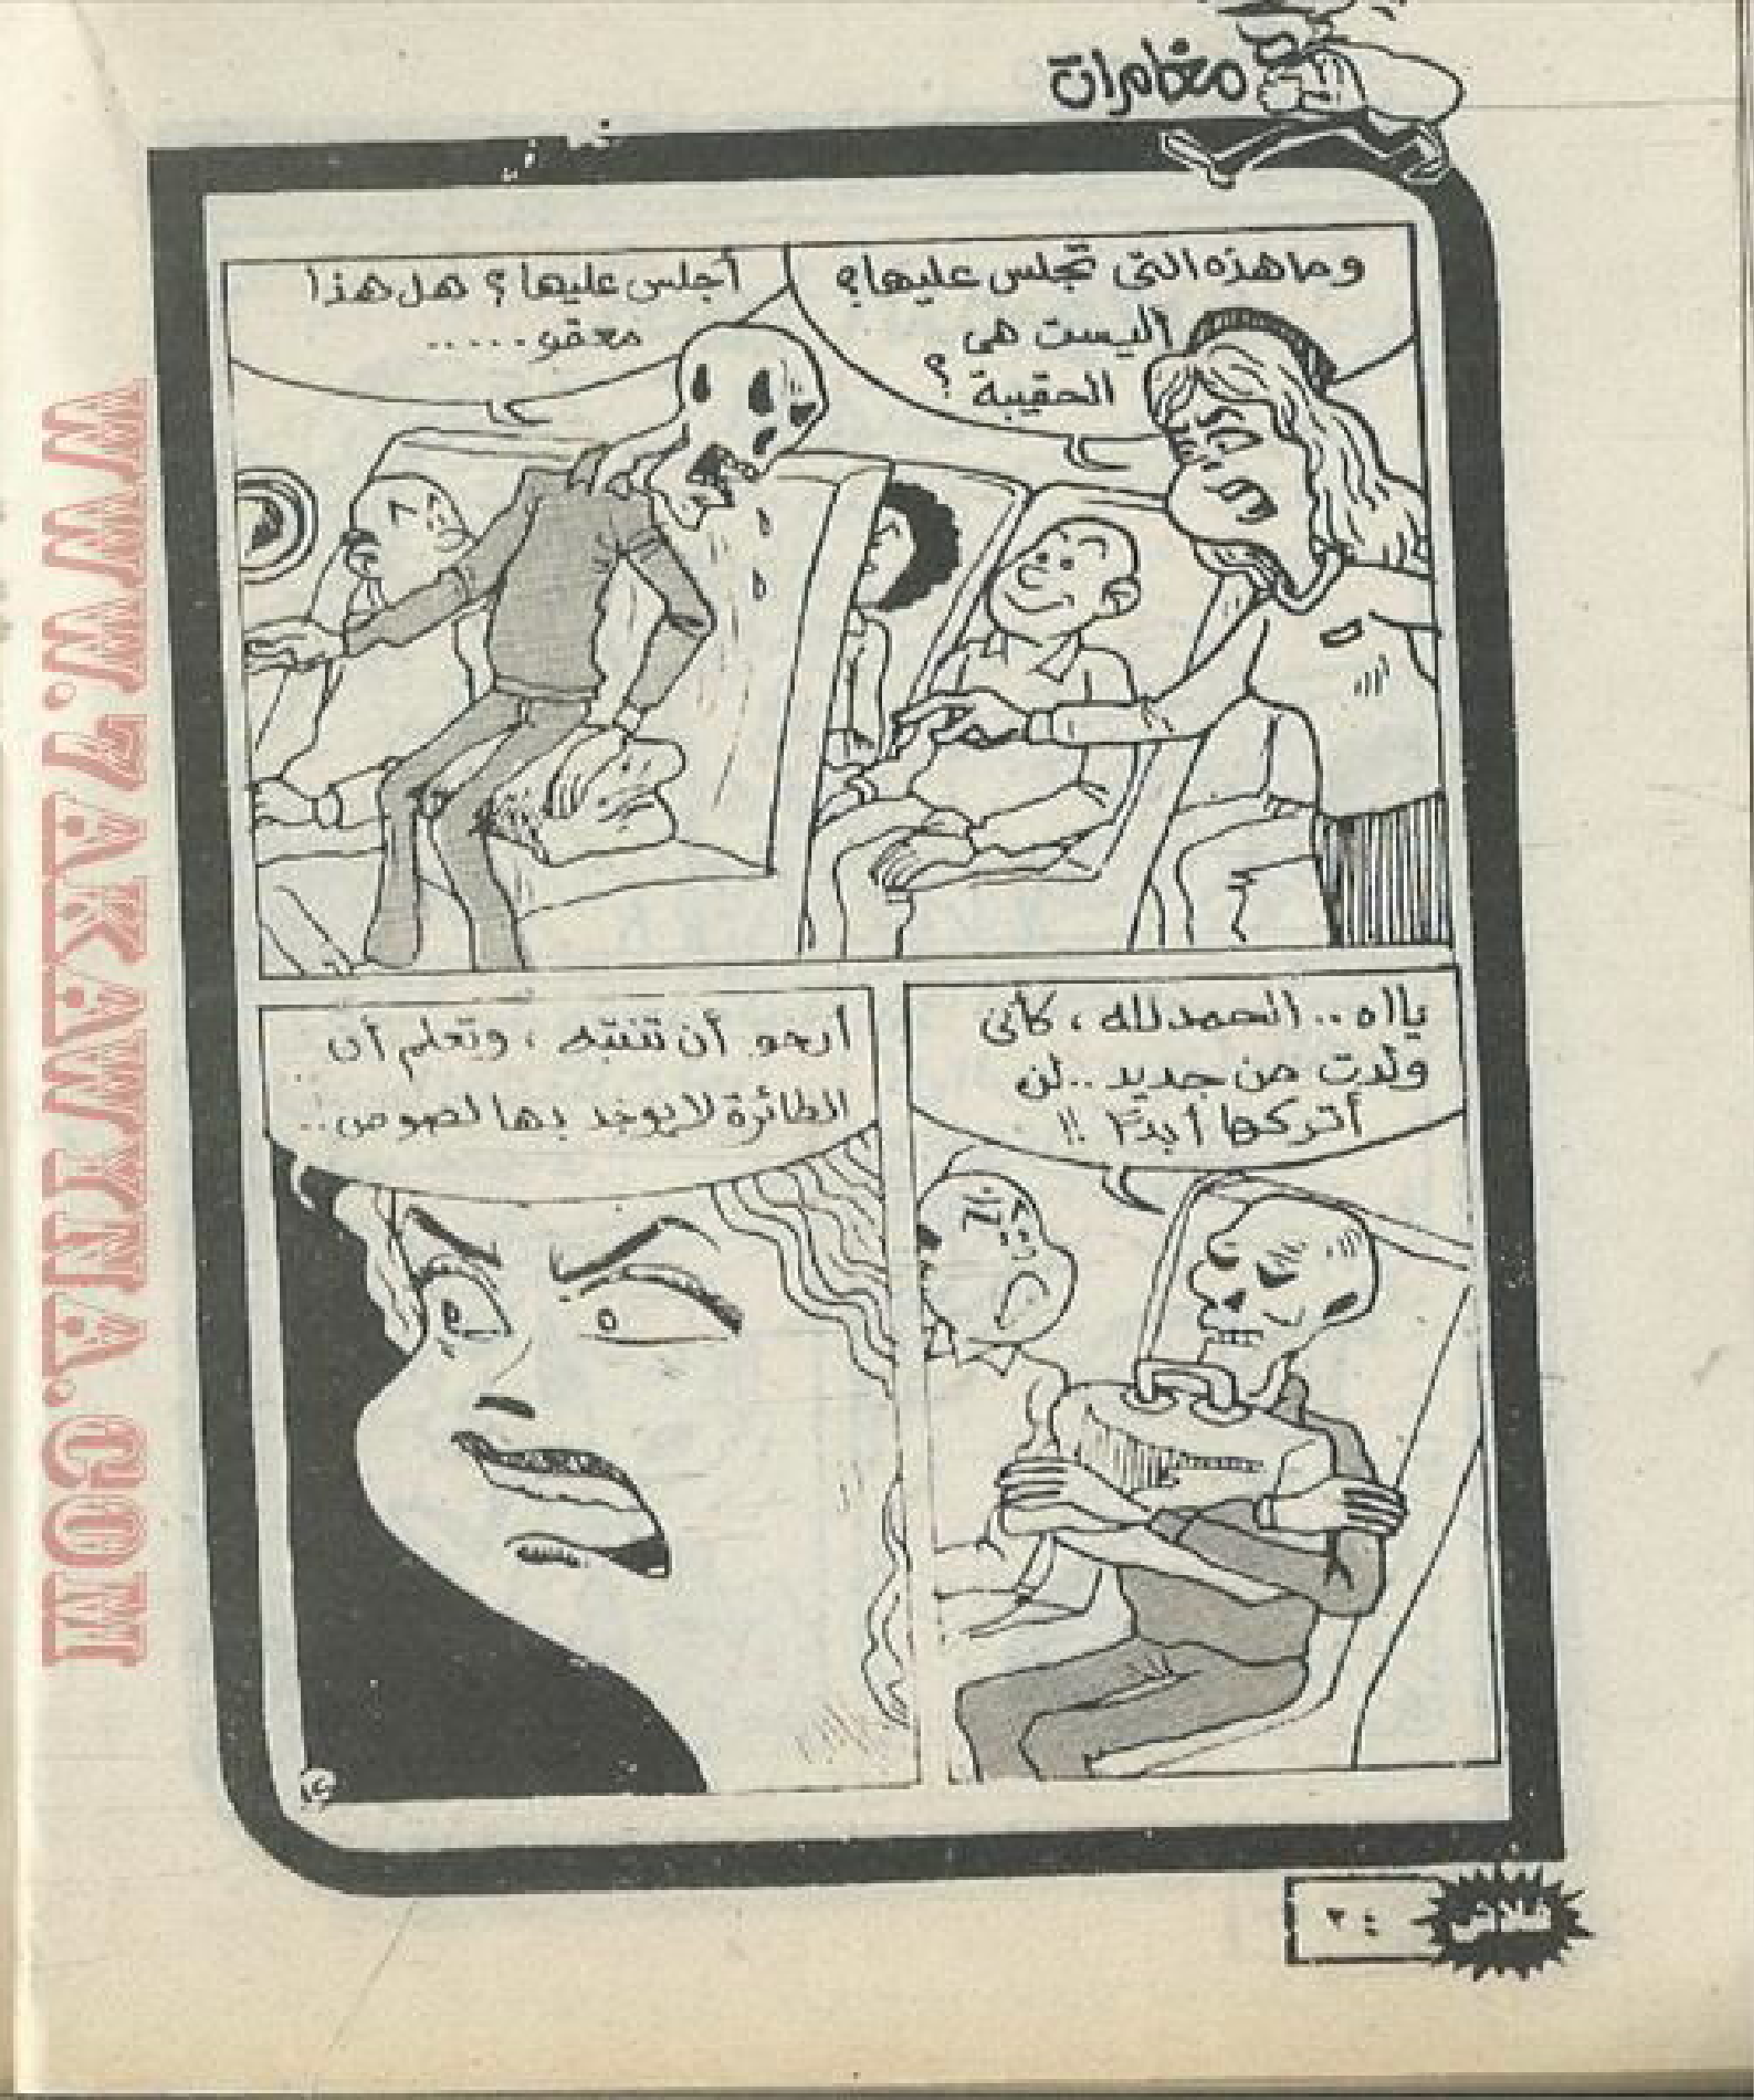 مغامرات
وما هذه التى تجلس عليها؟
اليست هى
الحقيبة ؟
أجلس عليها؟ هل هذا
معقو.....
يااه.. الحمد لله ، كأنى
ولدت من جديد ..لن
أتركها أبدًا !!
أرجو أن تنتبه ، وتعلم أن
الطائرة لا يوجد بها لصوص..
١٩
فلاش
٣٤
WWW.7AKAWINA.COM